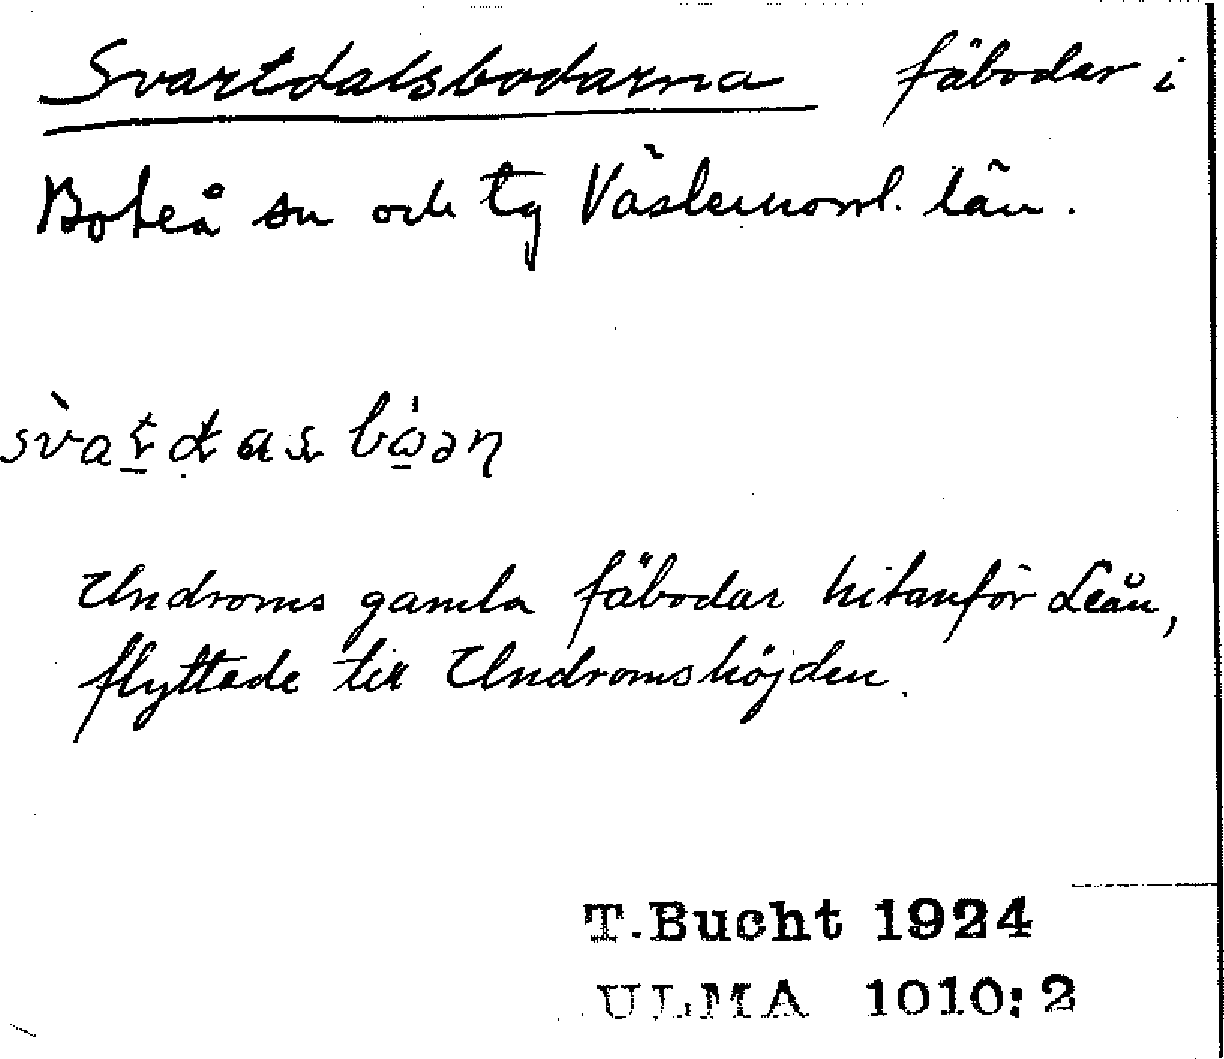 Svartdalsbodarna fäbodar i
Boteå sn och tg Västernorrl. län.
Undroms gamla fäbodar hitanför Leån,
flyttade till Undromshöjden.
T. Bucht 1924
ULMA 1010:2